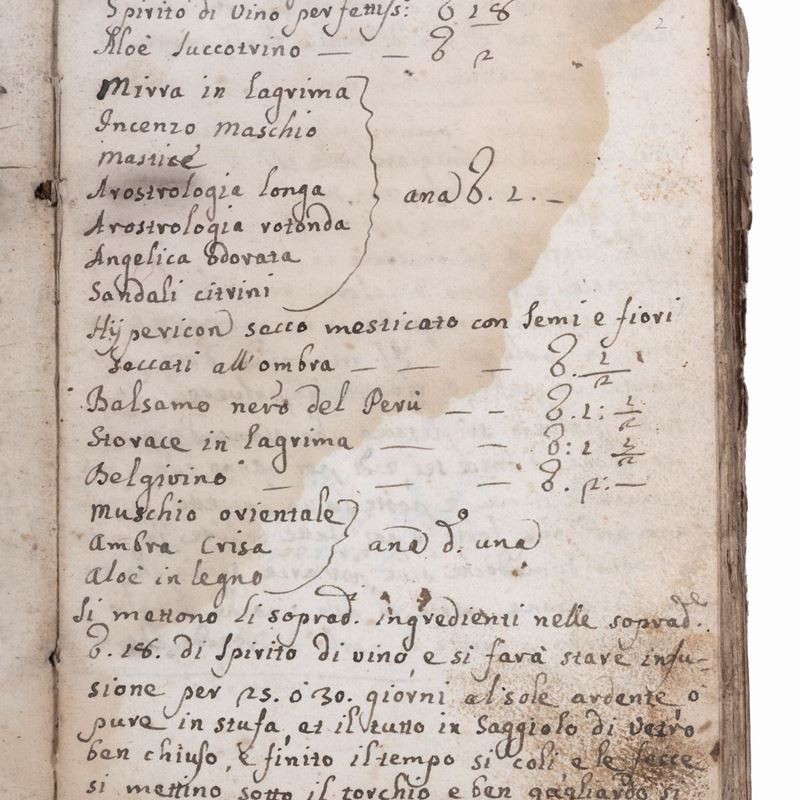 Spirito di Vino perfettiss: ℥ 18
Aloè succotrino — — ℥ 2
Mirra in lagrima
Incenzo maschio
Mastice
Arostrologia longa
ana ℥. 1. —
Arostrologia rotonda
Angelica odorata
Sandali citrini
Hypericon secco mesticato con semi e fiori
seccati all'ombra — — — ℥. 1/2
Balsamo nero del Perù — — ℥. 1: 1/2
Storace in lagrima — — ℥: 1 1/2
Belgivino — — ℥. 2: —
Muschio orientale
Ambra Crisa
ana d. una
Aloè in legno
Si mettono li soprad. ingredienti nelle soprad.te
℥. 18. di Spirito di vino, e si farà stare infu-
sione per 25. ò 30. giorni al sole ardente, o
pure in stufa, et il tutto in Saggiolo di vetro
ben chiuso, e finito il tempo si coli e le fecce
si mettino sotto il torchio e ben gagliardo si
2